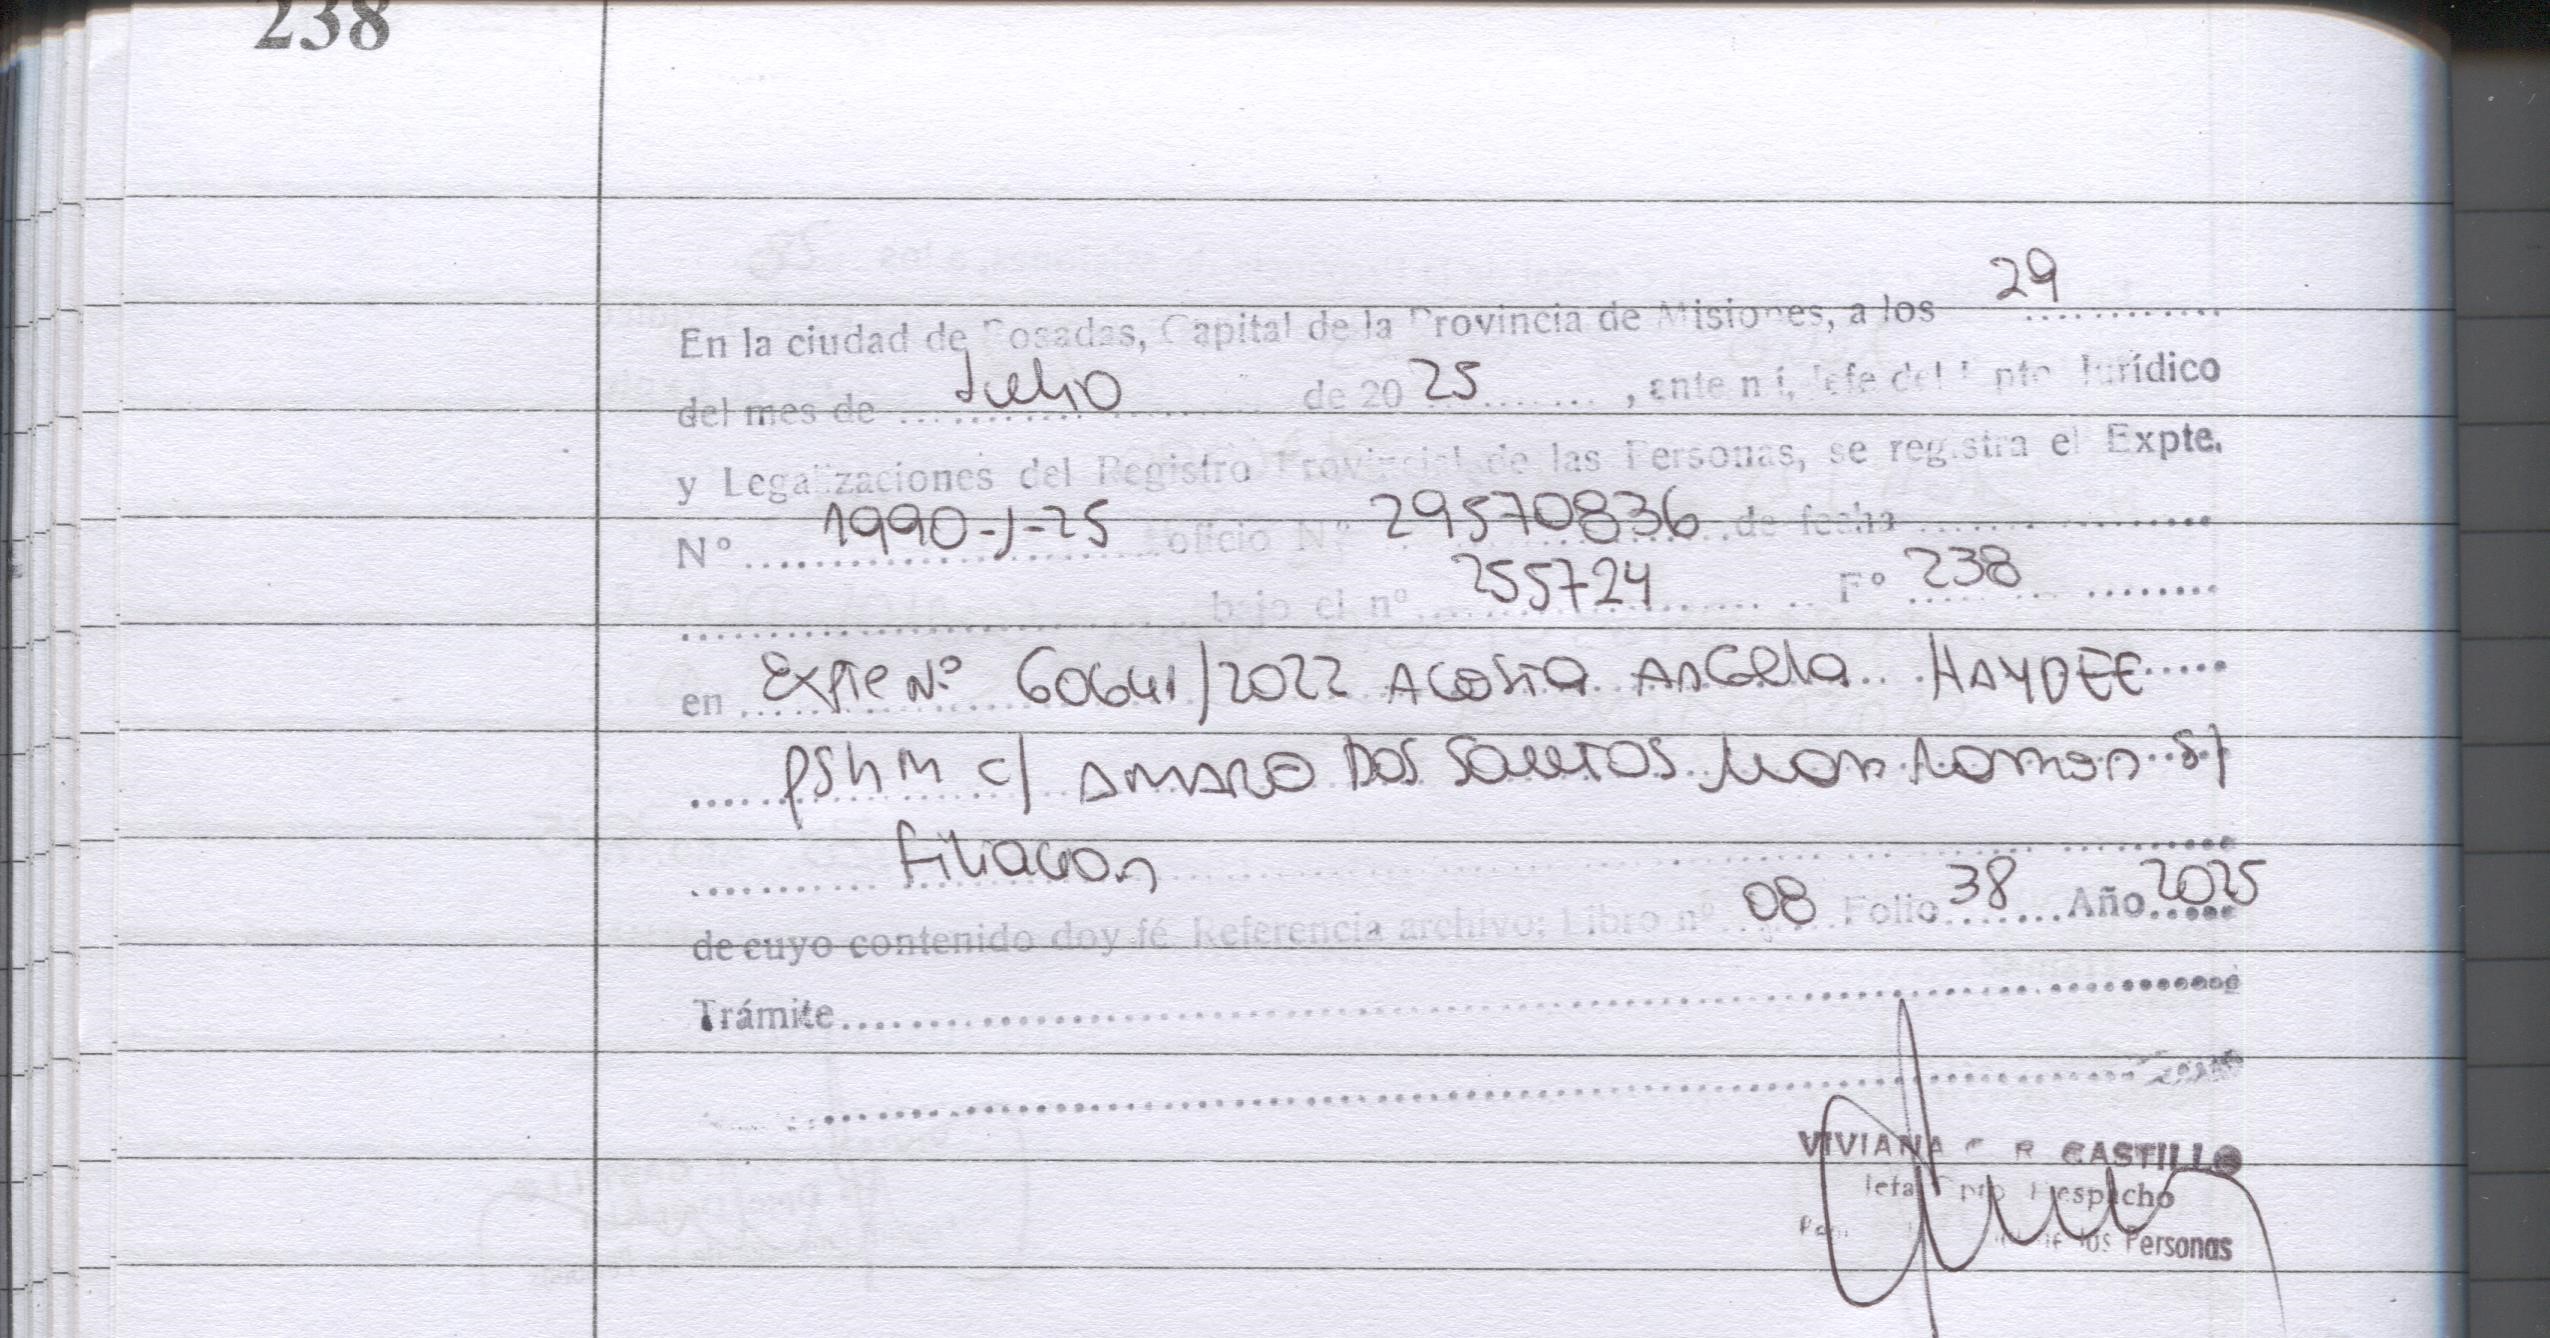 238
En la ciudad de Posadas, Capital de la Provincia de Misiones, a los 29
del mes de Julio de 2025, ante mí, Jefe del Dpto Jurídico
y Legalizaciones del Registro Provincial de las Personas, se registra el Expte.
Nº 1990-J-25 oficio Nº 29570836 de fecha
bajo el nº 255724 Fº 238
en Expte Nº 60641/2022 Acosta Angela HAYDEE
PSHM c/ AMARO DOS SANTOS Juan Ramon S/
filiacion
de cuyo contenido doy fé Referencia archivo: Libro nº 08 Folio 38 Año 2025
Trámite
VIVIANA R CASTILLO
Jefa Dpto Despacho
de las Personas